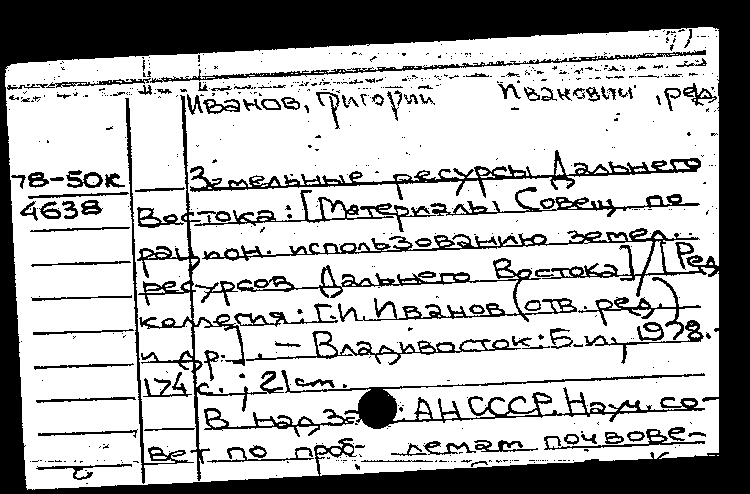 Иванов, Григорий Иванович, ред.
78-50к Земельные ресурсы Дальнего
4638 Востока: [Материалы Совещ. по
рацион. использованию земел.
ресурсов Дальнего Востока] / [Ред.
коллегия: Г.И. Иванов (отв. ред.)
и др.]. – Владивосток: Б.и., 1978.-
174 с.; 21 см.
В надзаг.: АН СССР. Науч. со-
вет по проб- лемам почвове-